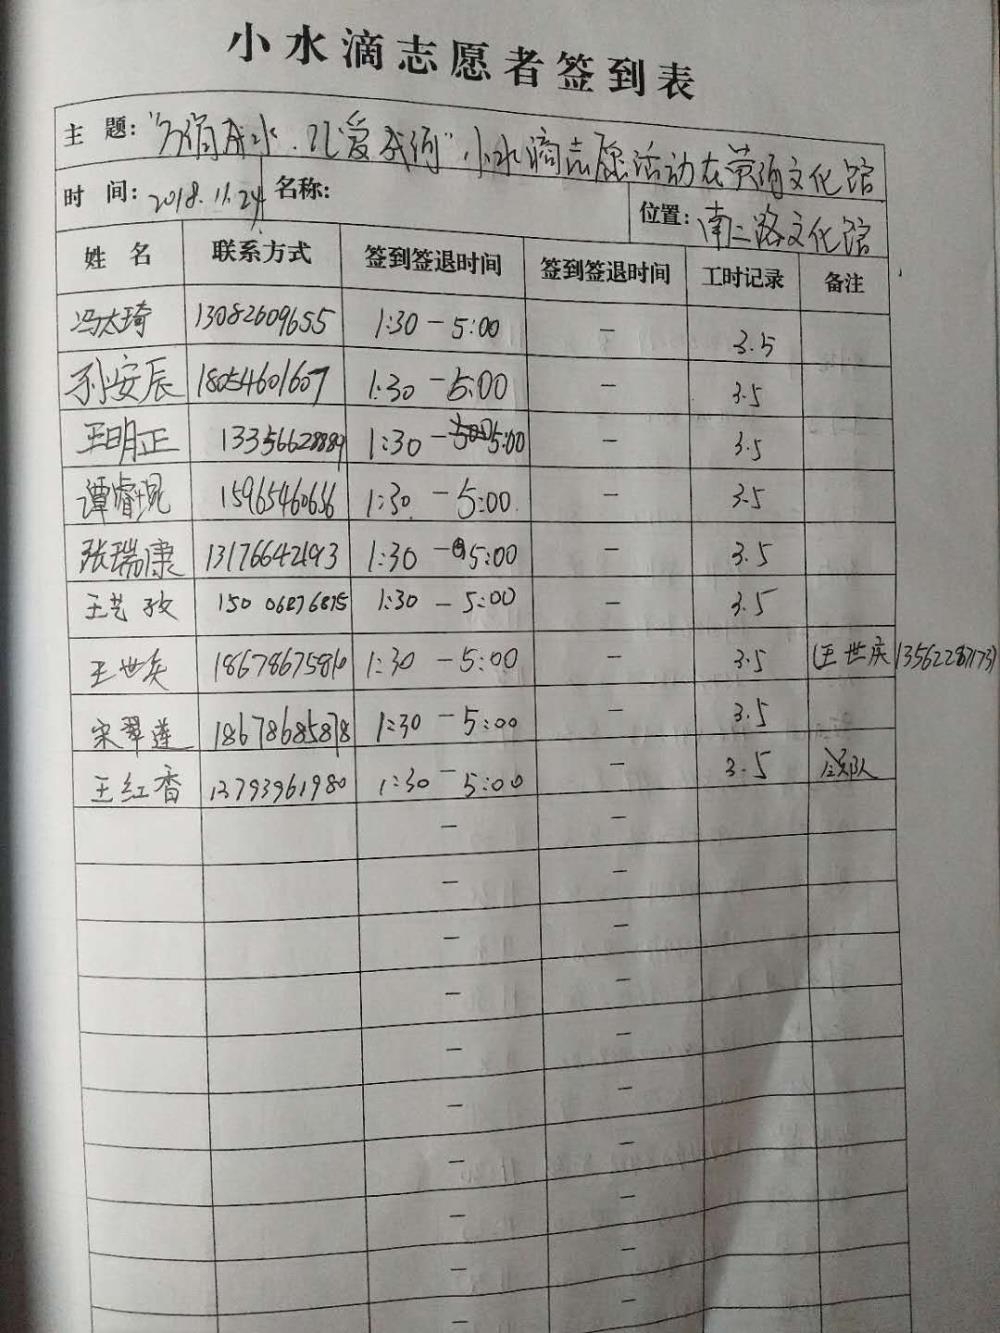 小水滴志愿者签到表
主 题: 小水滴志愿活动在黄河文化馆
时 间: 2018.11.24 名称: 位置: 南二路文化馆
姓 名 联系方式 签到签退时间 签到签退时间 工时记录 备注
冯太琦 13082609655 1:30 - 5:00 - 3.5
孙安辰 18054601607 1:30 - 5:00 - 3.5
王明正 13356628889 1:30 - 5:00 - 3.5
谭睿琨 15965460656 1:30 - 5:00 - 3.5
张瑞康 13176642193 1:30 - 5:00 - 3.5
王艺孜 15006876875 1:30 - 5:00 - 3.5
王世奂 1:30 - 5:00 - 3.5 (王世庆
宋翠莲 18678685878 1:30 - 5:00 - 3.5
王红香 13793961980 1:30 - 5:00 - 3.5 领队
- -
- -
- -
- -
- -
- -
- -
- -
- -
-